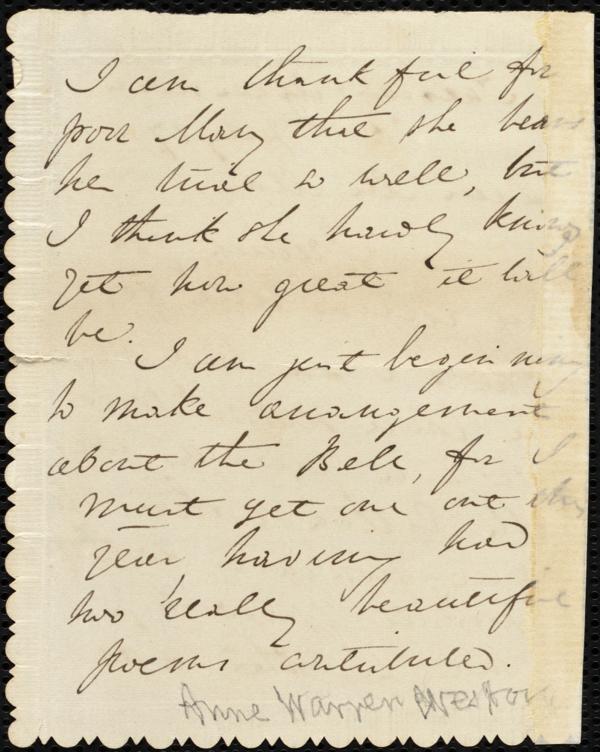 I am thankful for
poor Mary that she bears
her trial so well, but
I think she hardly knows
yet how great it will
be.
I am just beginning
to make arrangement
about the Bell, for I
must get one out this
year having had
two really beautiful
poems contributed.
Anne Warren Weston